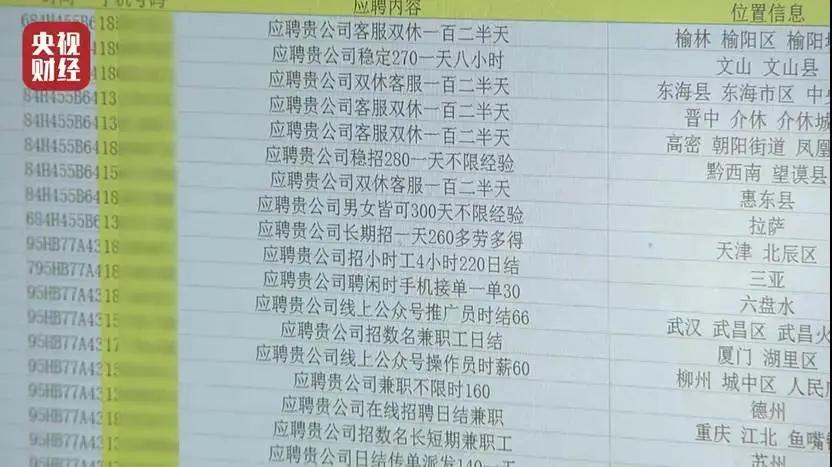 央视财经
手机号码 应聘内容 位置信息
684H455B6 185 应聘贵公司客服双休一百二半天 榆林 榆阳区 榆阳
84H455B64 189 应聘贵公司稳定270一天八小时 文山 文山县
84H455B64 18 应聘贵公司双休客服一百二半天 东海县 东海市区
84H455B64 13 应聘贵公司客服双休一百二半天 晋中 介休 介休城
84H455B64 13 应聘贵公司客服双休一百二半天 高密 朝阳街道 凤凰
84H455B64 13 应聘贵公司稳招280一天不限经验 黔西南 望谟县
84H455B64 15 应聘贵公司双休客服一百二半天 惠东县
84H455B64 18 应聘贵公司男女皆可300天不限经验 拉萨
684H455B6 13 应聘贵公司长期招一天260多劳多得 天津 北辰区
95HB77A43 13 应聘贵公司招小时工4小时220日结 三亚
795HB77A4 18 应聘贵公司聘闲时手机接单一单30 六盘水
95HB77A43 18 应聘贵公司线上公众号推广员时结66 武汉 武昌区 武昌火
95HB77A43 15 应聘贵公司招数名兼职工日结 厦门 湖里区
95HB77A43 17 应聘贵公司线上公众号操作员时薪60 柳州 城中区 人民
95HB77A43 15 应聘贵公司兼职不限时160 德州
95HB77A43 13 应聘贵公司在线招聘日结兼职 重庆 江北 鱼嘴
95HB77A43 18 应聘贵公司招数名长短期兼职工 苏州
95HB77A43 13 应聘贵公司日结传单派发140一天